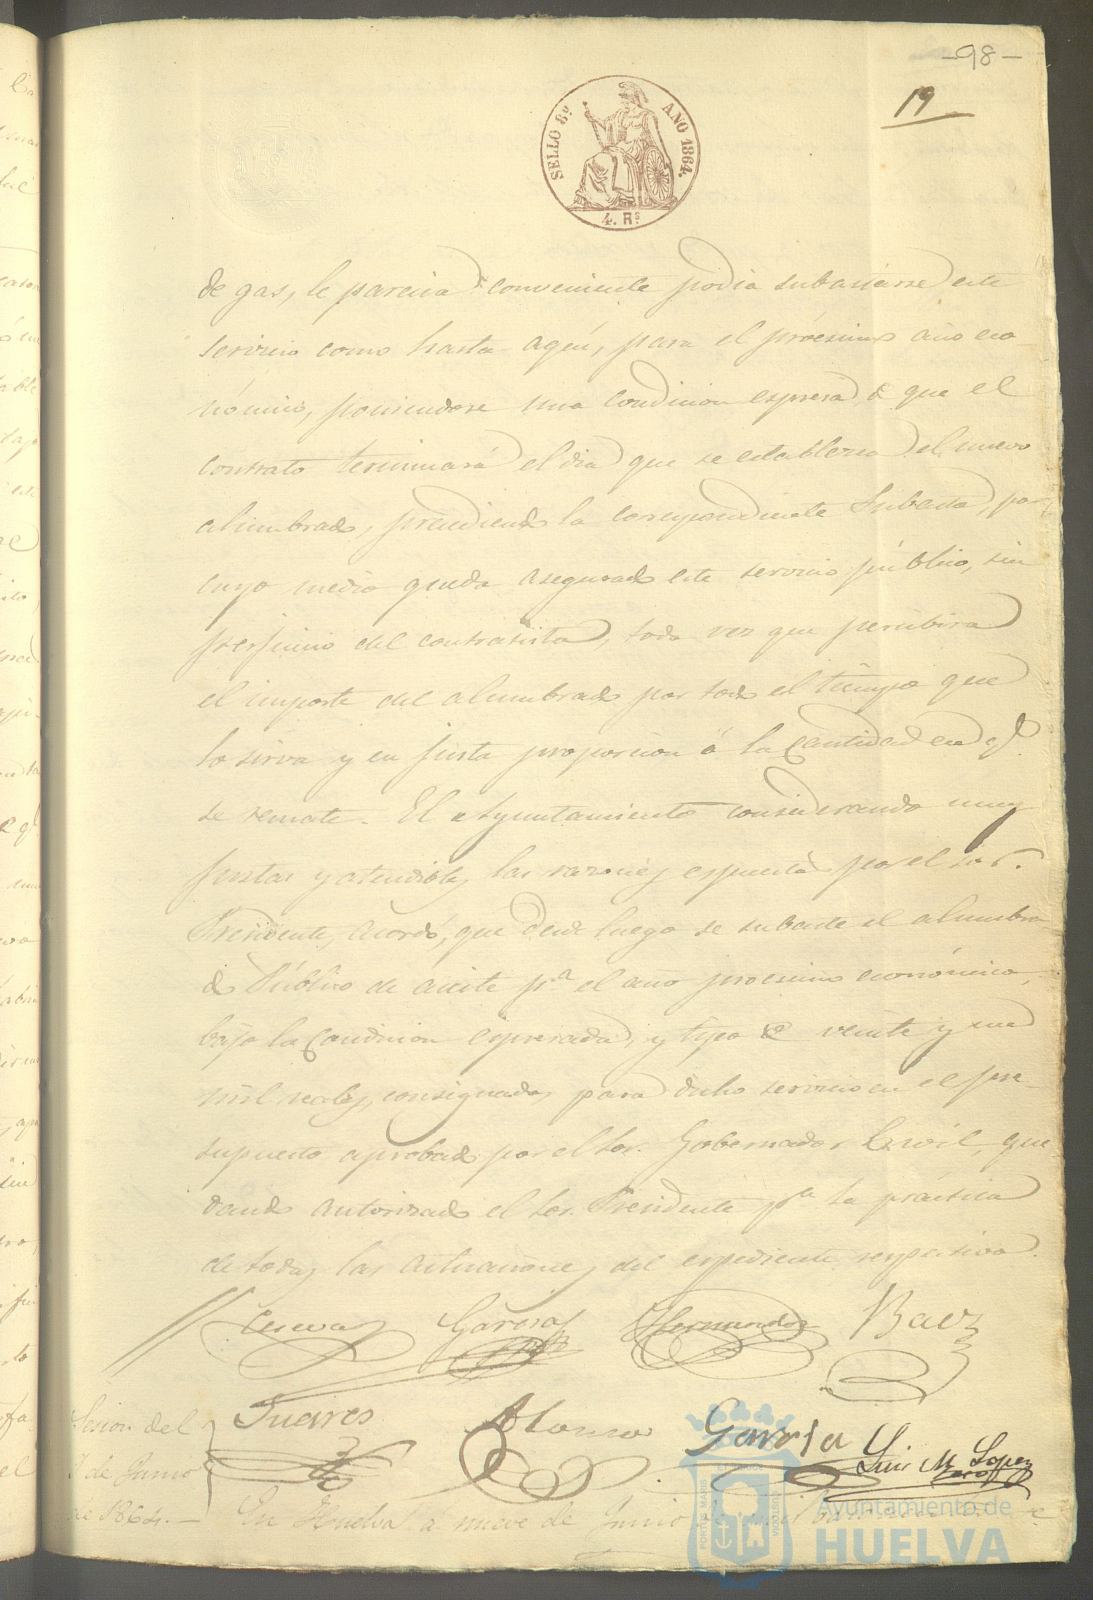 -98-
19
SELLO 8º AÑO 1864.
4. Rs
de gas, le parecia conveniente podia subastarse este
servicio como hasta aquí, para el prócsimo año eco
nómico, poniendose una condicion espresa, de que el
contrato terminará el dia que se establezca el nuevo
alumbrado, precediendo la correspondiente Subasta, por
cuyo medio queda asegurado este servicio público, sin
perjuicio del contratista, toda vez que percibirá
el importe del alumbrado por todo el tiempo que
lo sirva y en justa proporcion á la Cantidad en q.
se remate. El Ayuntamiento considerando muy
justas y atendibles las razones espuestas por el Sor.
Presidente, acordó, que desde luego se subaste el alumbra
do Público de aceite pª el año procsimo económico,
bajo la Condicion espresada, y tipo de veinte y un
mil reales, consignados para dicho servicio en el pre-
supuesto aprobado por el Sor. Gobernador Civil, que
dando autorizado el Sor. Presidente pª la práctica
de todas las actuaciones del espediente respectivo.
Garcia Hernandez Baez
Suares Alonso Garcia Luis M. Lopez
Sesion del
de Junio
de 1864.— En Huelva á nueve de Junio de mil
PORTUS MARIS
Ayuntamiento de
HUELVA